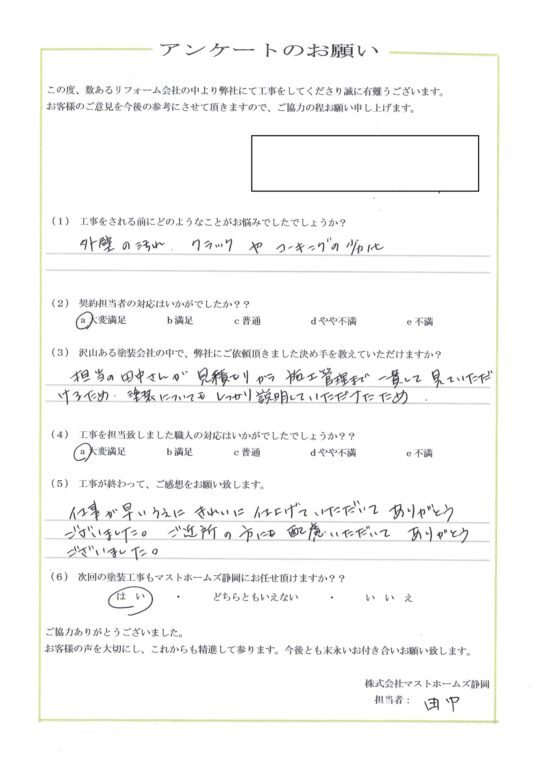 アンケートのお願い
この度、数あるリフォーム会社の中より弊社にて工事をしてくださり誠に有難うございます。
お客様のご意見を今後の参考にさせて頂きますので、ご協力の程お願い申し上げます。
(1) 工事をされる前にどのようなことがお悩みでしたでしょうか？
外壁の汚れ、クラックやコーキングの劣化
(2) 契約担当者の対応はいかがでしたか？？
a大変満足 b満足 c普通 dやや不満 e不満
(3) 沢山ある塗装会社の中で、弊社にご依頼頂きました決め手を教えていただけますか？
担当の田中さんが見積もりから施工管理まで一貫して見ていただ
けるため、塗装についてもしっかり説明していただけたため。
(4) 工事を担当致しました職人の対応はいかがでしたでしょうか？
a大変満足 b満足 c普通 dやや不満 e不満
(5) 工事が終わって、ご感想をお願い致します。
仕事が早いうえにきれいに仕上げていただいてありがとう
ございました。ご近所の方にも配慮いただいてありがとう
ございました。
(6) 次回の塗装工事もマストホームズ静岡にお任せ頂けますか？？
はい ・ どちらともいえない ・ いいえ
ご協力ありがとうございました。
お客様の声を大切にし、これからも精進して参ります。今後とも末永いお付き合いお願い致します。
株式会社マストホームズ静岡
担当者： 田中